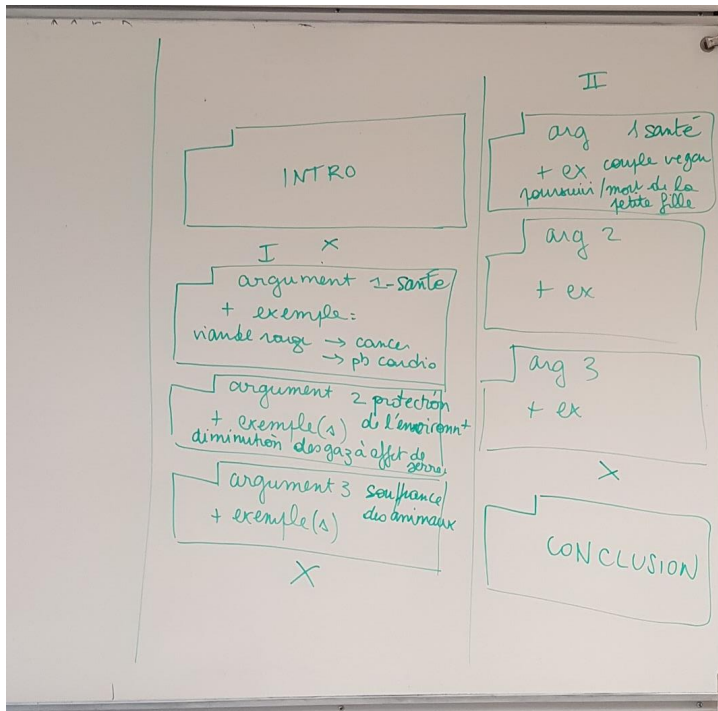 INTRO
X
I
argument 1-santé
+ exemple:
viande rouge → cancer
→ pb cardio
argument 2 protection
+ exemple(s) de l'environnt
diminution des gaz à effet de
serre
argument 3 souffrance
+ exemple(s) des animaux
X
II
arg 1 santé
+ ex couple vegan
poursuivi / mort de la
petite fille
arg 2
+ ex
arg 3
+ ex
X
CONCLUSION